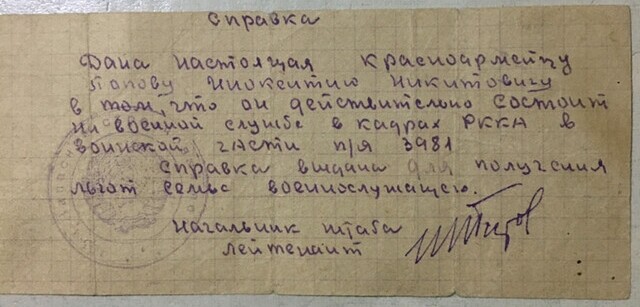 Справка
Дана настоящая красноармейцу
Попову Инокентию Никитовичу
в том, что он действительно состоит
на военой службе в кадрах РККА в
воинской части п/я 3981
Справка выдана для получения
льгот семье военнослужащего.
Начальник штаба
лейтенант